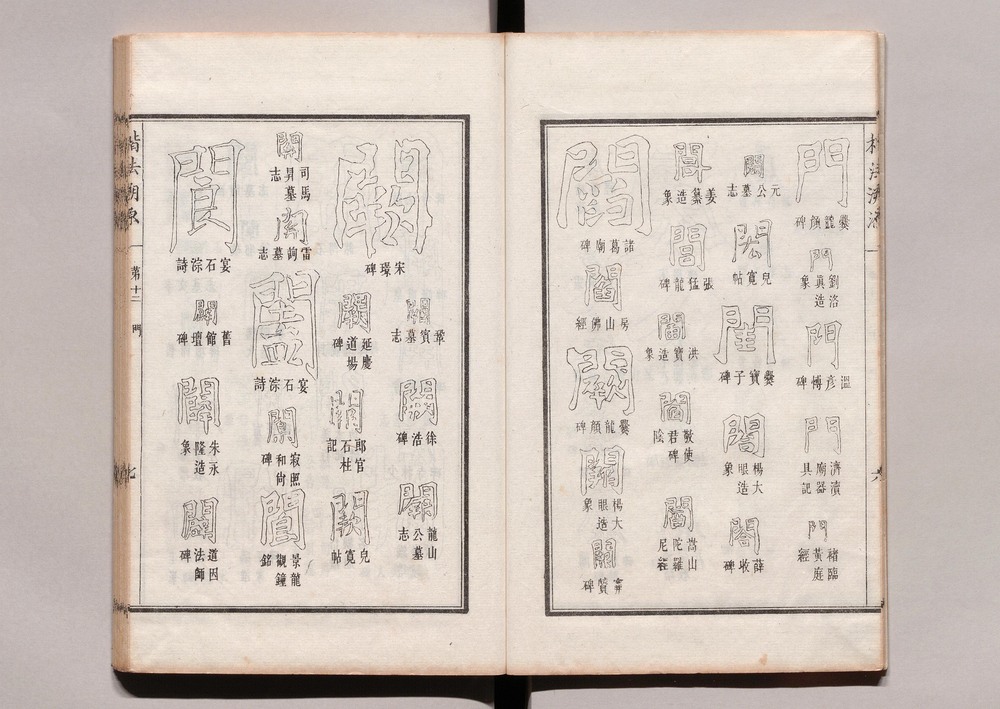 楷法溯源
門
爨龍顏碑
門
劉洛真造象
門
溫彥博碑
門
濟瀆廟器具記
門
褚臨黃庭經
閎
元公墓志
閎
兒寬帖
閨
爨寶子碑
閻
楊大眼造象
閤
薛收碑
閭
姜纂造象
閭
張猛龍碑
閻
洪寶造象
閻
敬使君碑陰
閻
嵩山陀羅尼經
閻
諸葛廟碑
閻
房山佛經
闕
爨龍顏碑
闕
楊大眼造象
碑
闕
宋璟碑
賓墓志
闕
徐浩碑
闢
龍山公墓志
闕
延慶道場碑
郎官石柱記
闕
兒寬帖
司馬昇墓志
雷詢墓志
闔
宴石淙詩
寂照和尚碑
闔
景龍觀鐘銘
閬
宴石淙詩
闢
舊館壇碑
闢
朱永隆造象
闢
道因法師碑
楷法溯源
第十二
門
七